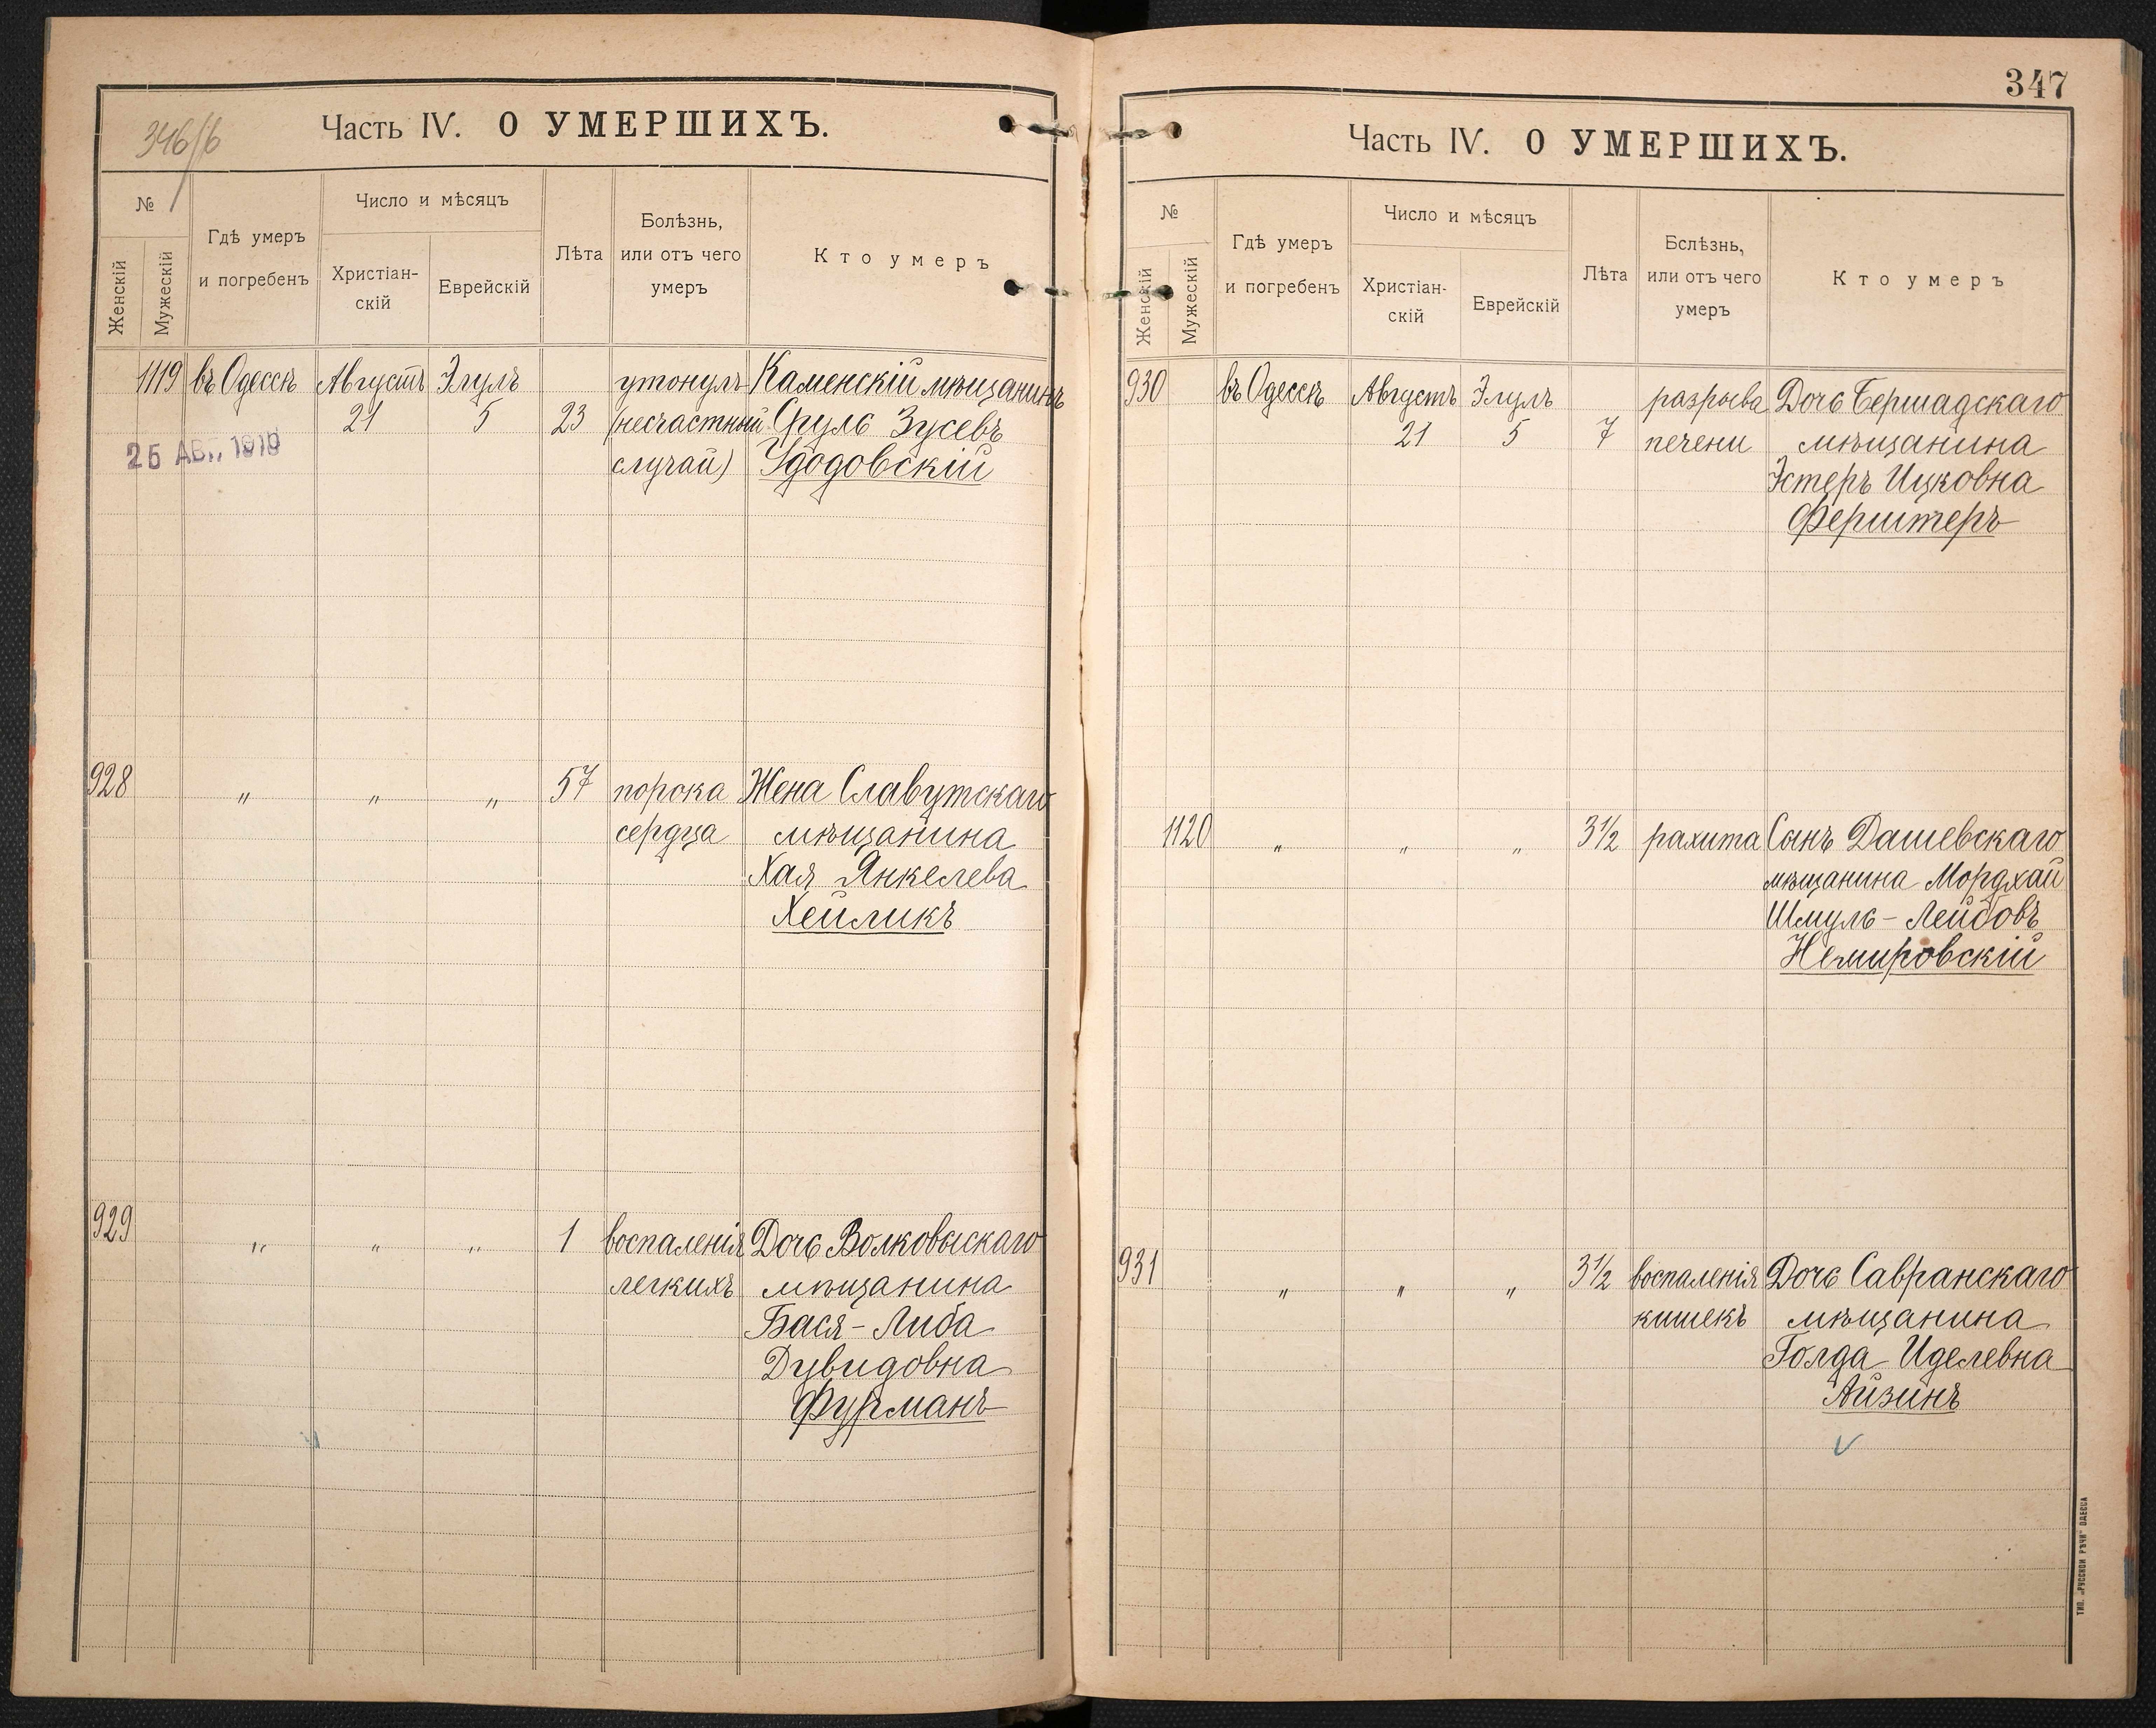 346/б
Часть IV. О УМЕРШИХЪ.
№
Женскій
Мужескій
Гдѣ умеръ
и погребенъ
Число и мѣсяцъ
Христіан-
скій
Еврейскій
Лѣта
Болѣзнь,
или отъ чего
умеръ
Кто умеръ
1119 въ Одессѣ Августъ Элулъ утонулъ Каменскій мѣщанинъ
21 5 23 (несчастный Сруль Зусевъ
25 АВГ. 1910
случай) Удодовскій
928 " " " 57 порока Жена Славутскаго
сердца мѣщанина
Хая Янкелева
Хейликъ
929 " " " 1 воспаленія Дочь Волковыскаго
легкихъ мѣщанина
Бася-Либа
Дувидовна
Фурманъ
347
Часть IV. О УМЕРШИХЪ.
№
Женскій
Мужескій
Гдѣ умеръ
и погребенъ
Число и мѣсяцъ
Христіан-
скій
Еврейскій
Лѣта
Бслѣзнь,
или отъ чего
умеръ
Кто умеръ
930 въ Одессѣ Августъ Элулъ разрыва Дочь Бершадскаго
21 5 7 печени мѣщанина
Эстеръ Ицковна
Ферштеръ
1120 " " " 3½ рахита Сынъ Дашевскаго
мѣщанина Мордхай
Шмуль-Лейбовъ
Немировскій
931 " " " 3½ воспаленія Дочь Савранскаго
кишекъ мѣщанина
Голда Иделевна
Айзинъ
ТИП. „РУССКОЙ РѢЧИ" ОДЕССА